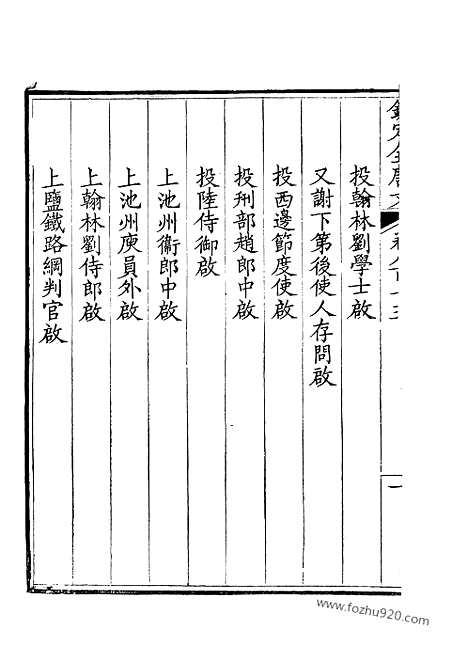 欽定全唐文
卷八百十五
一
投翰林劉學士啟
又謝下第後使人存問啟
投西邊節度使啟
投刑部趙郎中啟
投陸侍御啟
上池州衞郎中啟
上池州庾員外啟
上翰林劉侍郎啟
上鹽鐵路綱判官啟
www.fozhu920.com